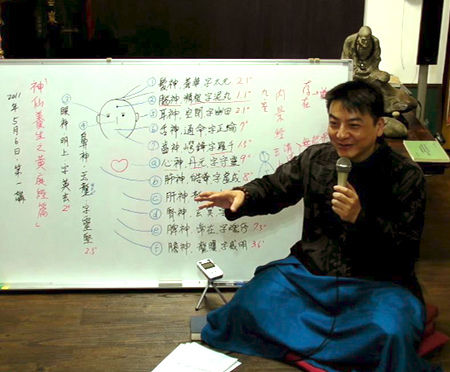 「神仙養生之黃庭經篇」
2011年5月6日.第一講
③眼神 明上 字英玄
④鼻神 玉壟 字靈堅 2.5"
①髮神 蒼華 字太元 2.1"
②腦神 精根 字泥丸 1.1"
⑤耳神 空閒 字幽田 2.1"
⑥舌神 通命 字正倫 7"
⑦齒神 崿鋒 字羅千 1.5"
ⓐ心神 丹元 字守靈 9"
ⓑ肺神 皓華 字虛成 8"
ⓒ肝神
ⓓ腎神 玄冥
ⓔ脾神 常在 字魂停 7.3"
ⓕ膽神 龍曜 字威明 3.6"
內景經